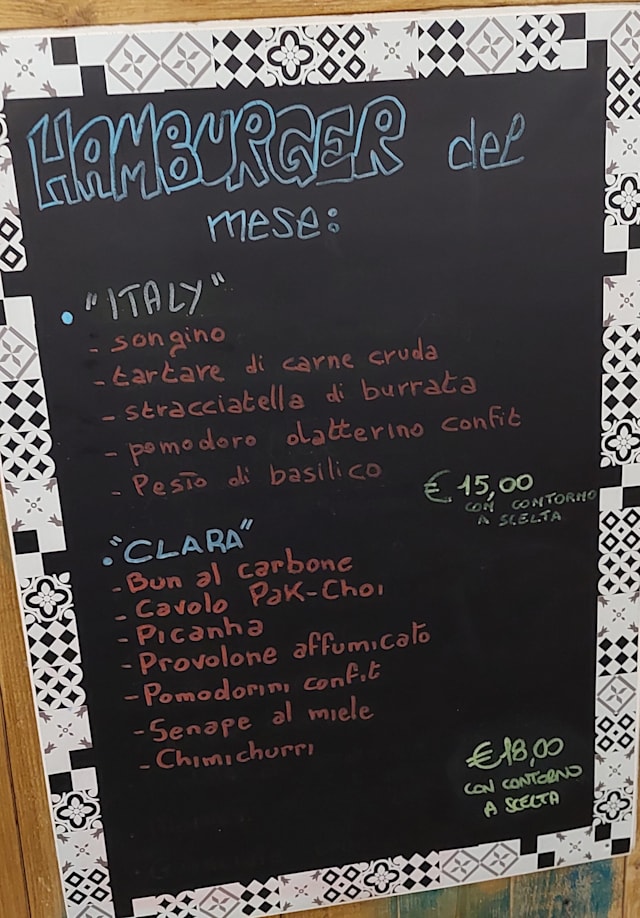 HAMBURGER del
mese:
• "ITALY"
- songino
- tartare di carne cruda
- stracciatella di burrata
- pomodoro datterino confit
- Pesto di basilico
€ 15,00
CON CONTORNO
A SCELTA
• "CLARA"
- Bun al carbone
- Cavolo Pak-Choi
- Picanha
- Provolone affumicato
- Pomodorini confit
- Senape al miele
- Chimichurri
€18,00
CON CONTORNO
A SCELTA